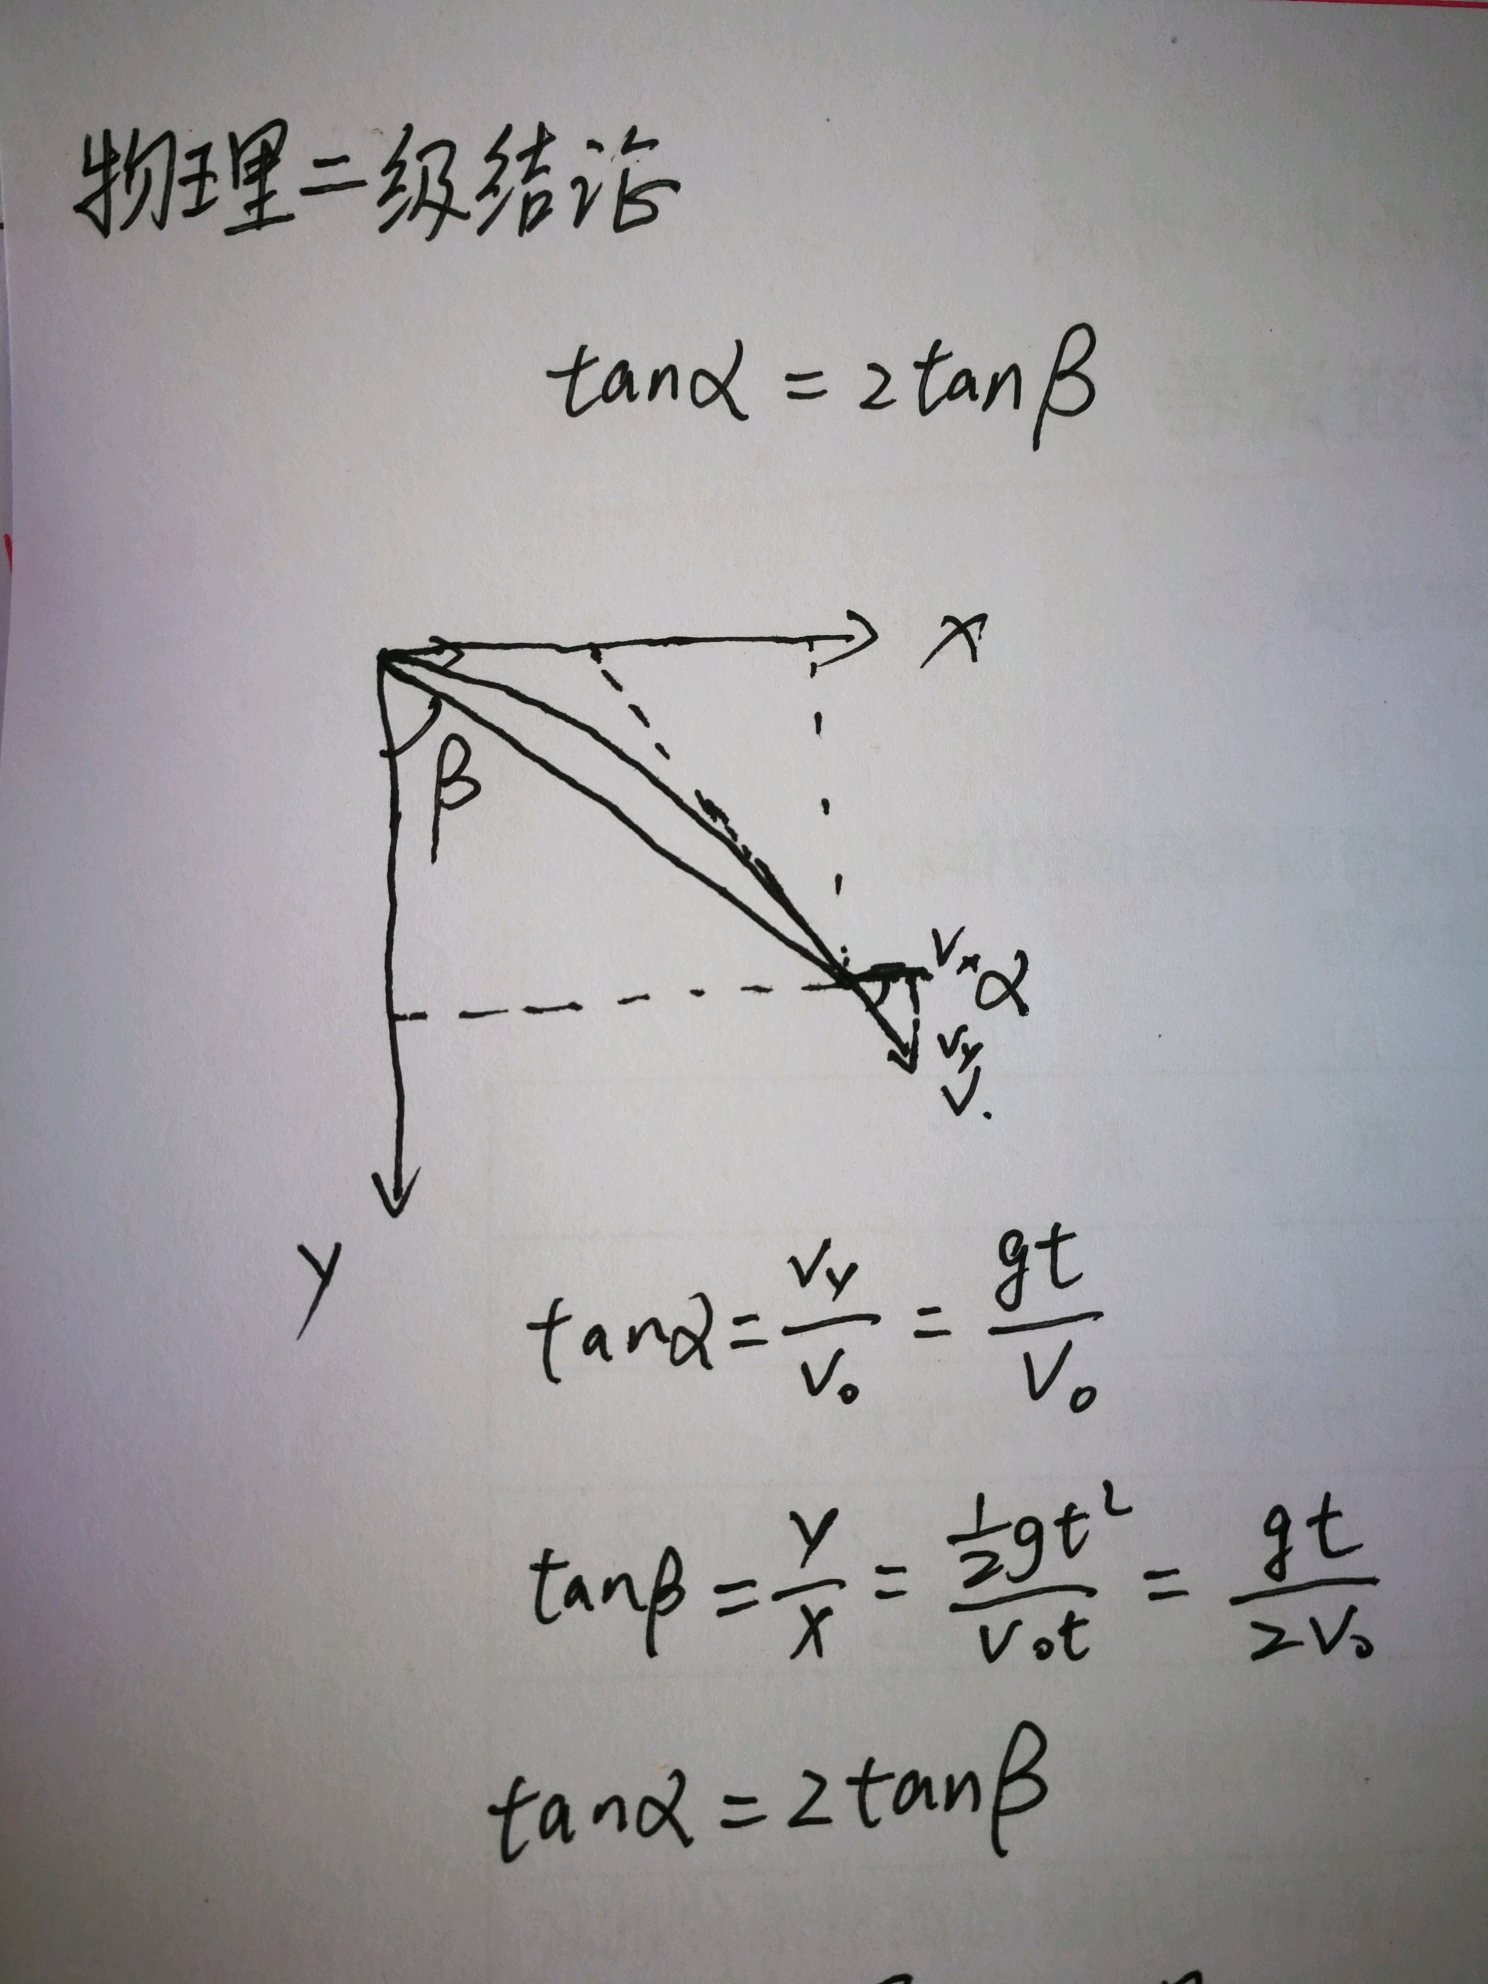 物理二级结论
tanα = 2tanβ
x
β
Vx α
Vy
V.
y
tanα = Vy/V₀ = gt/V₀
tanβ = y/x = ½gt²/V₀t = gt/2V₀
tanα = 2tanβ